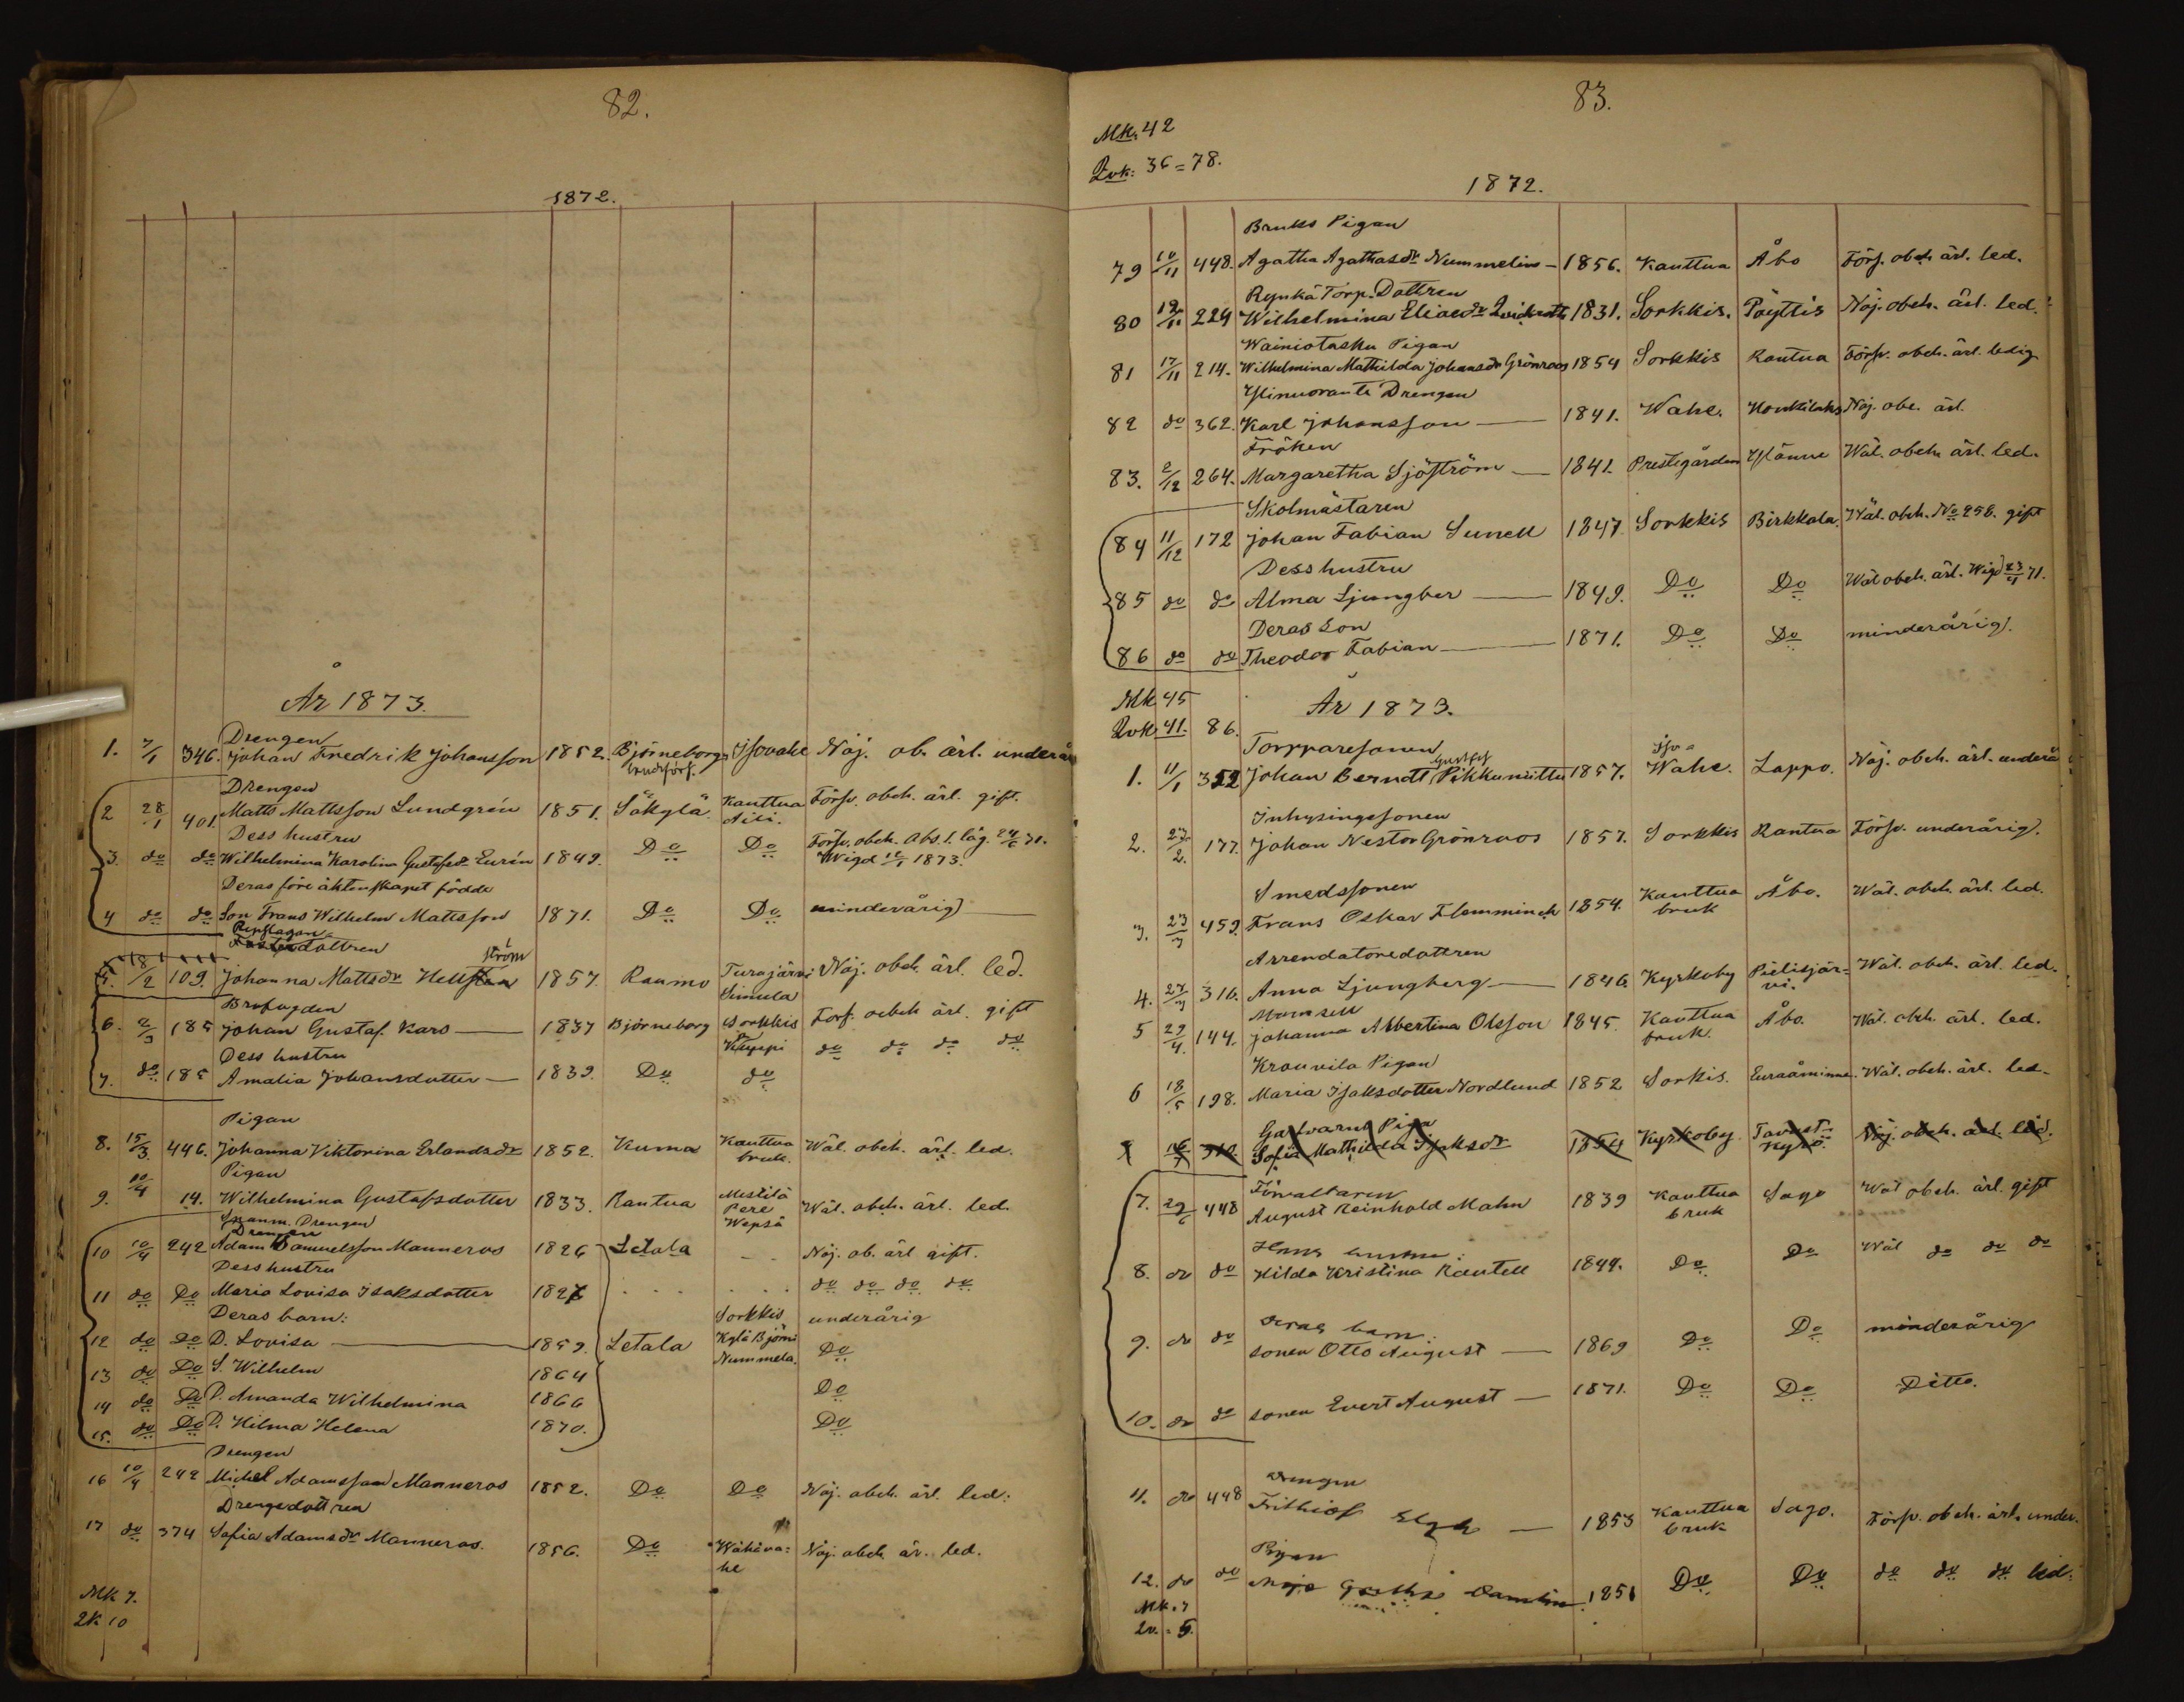 82.
1872.
År 1873.
Drengen
1. 7/1 346. Johan Fredrik Johansson 1852. Björneborgs Isovahe Nöj. ob. ärl. underår
landsförs.
Drengen
2 28/1 401. Matts Mattsson Lundgrén 1851. Säkylä. Kauttua Försv. obeh. ärl. gift.
Dess hustru
3. do do Wilhelmina Karolina Gustafsdr Eurén 1849. Do Do Försv. obeh.
Wigd 1873.
Deras före äktenskapet födde
4 do do Son Frans Wilhelm Mattsson 1871. Do Do minderårig
dottren
ström
5. 18/2 109. Johanna Mattsdr Hell 1857. Raumo Turajärvi Nöj. obeh. ärl. led.
Simula
6. 2/3 185 Johan Gustaf Karo 1837 Björneborg Sorkkis Förs. obeh ärl. gift
Dess hustru
7. do 185 Amalia Johansdotter 1839. Do do do do do do
Pigan
8. 15/3 446. Johanna Viktorina Erlandsdr 1852. Kumo Kauttua bruk. Wäl. obeh. ärl. led.
Pigan
9. 10/4 14. Wilhelmina Gustafsdotter 1833. Kantua Mestilä Pere Wepsä Wäl. obeh. ärl. led.
Drengen
10 10/4 242 Adam Samuelsson Manneros 1826 Letala Nöj. ob. ärl gift.
Dess hustru
11 do Do Maria Lovisa Isaksdotter do do do do
Deras barn:
12 do Do D. Lovisa 1859. Letala Sorkkis Kylä Björni Nummela. underårig
13 do Do S. Wilhelm 1864 Do
14 do Do D. Amanda Wilhelmina 1866 Do
15. do Do D. Hilma Helena 1870. Do
Drengen
16 10/4 242 Michel Adamsson Manneros 1852. Do Do Nöj. obeh. ärl. led.
Drengedottren
17 do 374 Sofia Adamsdr Manneros. 1856. Do Wähäva=he Nöj. obeh. är. led.
Mk 7.
2k 10
83.
Mk. 42
Qvk: 36 = 78.
1872.
Bruks Pigan
79 10/11 448. Agatha Agathasdr Nummelin 1856. Kauttua Åbo Förs. obeh ärl. led.
Rynkä Torp. Dottren
80 12/11 224 Wilhelmina Eliaedr 1831. Sorkkis. Pöytis Nöj. obeh. ärl. led.
Wainiotasku Pigan
81 17/11 214. Wilhelmina Mathilda Johansdr Grönroos 1854 Sorkkis Kantua Försv. obeh. ärl. ledig
Ylinuoranti Drengen
82 do 362. Karl Johansson 1841. Wahe. Honkilaks Nöj. obe. ärl.
Fröken
83. 2/12 264. Margaretha Sjöström 1841. Prestegården Yläne Wäl. obeh. ärl. led.
Skolmästaren
84 11/12 172 Johan Fabian Sunell 1847. Sorkkis Birkkala. Wäl. obeh. No 258. gift
Dess hustru
85 do do Alma Ljungber 1849. Do Do Wäl obeh. ärl. Wigd 23/4 71.
Deras Son
86 do do Theodor Fabian 1871. Do Do minderårig.
Mk 45
Qvk 41. 86.
År 1873.
Torpparesonen
Gustfsf
1. 11/1 352 Johan Berndt Pikkuniittu 1857. Iso-Wahe. Lappo. Nöj. obeh. ärl. underå
Inhysingesonen
2. 27/2. 177. Johan Nestor Grönroos 1857. Sorkkis Kantua Försv. underårig.
Smedssonen
3. 23/3 459. Frans Oskar Flemminch 1854. Kauttua bruk Åbo. Wäl. obeh. ärl. led.
Arrendatoredottren
4. 316. Anna Ljungberg 1846. Kyrkoby Pielisjär=vi. Wäl. obeh. ärl. led.
Mamsell
5 29/4. 144. Johanna Albertina Olsson 1845. Kauttua bruk. Åbo. Wäl. obeh. ärl. led.
Krouvila Pigan
6 18/5 198. Maria Isaksdotter Nordlund 1852 Sorkis. Euraåminne. Wäl. obeh. ärl. led.
Garvarns Piga
Sofia Mathilda Isaksdr 1854 Kyrkoby Tavast=Kyro. Nöj. obeh. ärl. led.
Förvaltaren
7. 29/6 448 August Reinhold Malm 1839 Kauttua bruk Sago Wäl obeh. ärl. gift
Hans hustru:
8. do do Hilda Kristina Rautell 1844. Do Do Wäl do do do
deras barn:
9. do do sonen Otto August 1869 Do Do minderårig
10. do do sonen Evert August 1871. Do Do Ditto.
drengen
11. do 448 Frithiof 1853 Kauttua bruk Sago. Försv. obeh. ärl. under.
Pigan
12. do do 1851 Do Do do do do led.
Mk. 7
Qv. = 5.